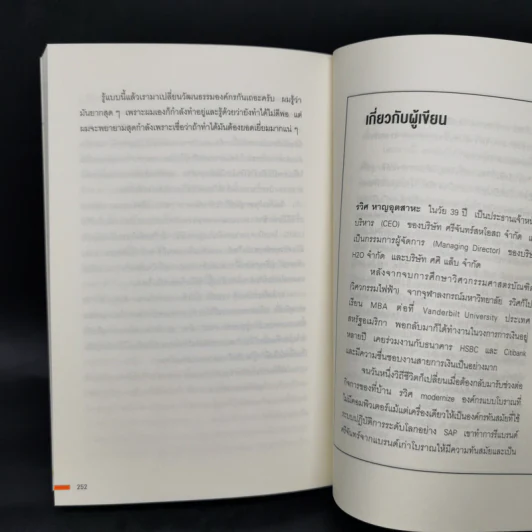 รู้แบบนี้แล้วเรามาเปลี่ยนวัฒนธรรมองค์กรกันเถอะครับ ผมรู้ว่า
มันยากสุด ๆ เพราะผมเองก็กำลังทำอยู่และรู้ด้วยว่ายังทำได้ไม่ดีพอ แต่
ผมจะพยายามสุดกำลังเพราะเชื่อว่าถ้าทำได้มันต้องยอดเยี่ยมมากแน่ ๆ
252
เกี่ยวกับผู้เขียน
รวิศ หาญอุตสาหะ ในวัย 39 ปี เป็นประธานเจ้าหน
บริหาร (CEO) ของบริษัท ศรีจันทร์สหโอสถ จำกัด
เป็นกรรมการผู้จัดการ (Managing Director) ของบริษ
H2O จำกัด และบริษัท ศศิ แล็บ จำกัด
หลังจากจบการศึกษาวิศวกรรมศาสตรบัณฑิต
(วิศวกรรมไฟฟ้า) จากจุฬาลงกรณ์มหาวิทยาลัย รวิศก็ไป
เรียน MBA ต่อที่ Vanderbilt University ประเทศ
สหรัฐอเมริกา พอกลับมาก็ได้ทำงานในวงการการเงินอยู่
หลายปี เคยร่วมงานกับธนาคาร HSBC และ Citibank
และมีความชื่นชอบงานสายการเงินเป็นอย่างมาก
จนวันหนึ่งวิถีชีวิตก็เปลี่ยนเมื่อต้องกลับมารับช่วงต่อ
กิจการของที่บ้าน รวิศ modernize องค์กรแบบโบราณที่
ไม่มีคอมพิวเตอร์แม้แต่เครื่องเดียวให้เป็นองค์กรทันสมัยที่ใช้
ระบบปฏิบัติการระดับโลกอย่าง SAP เขาทำการรีแบรนด์
ศรีจันทร์จากแบรนด์เก่าโบราณให้มีความทันสมัยและเป็น